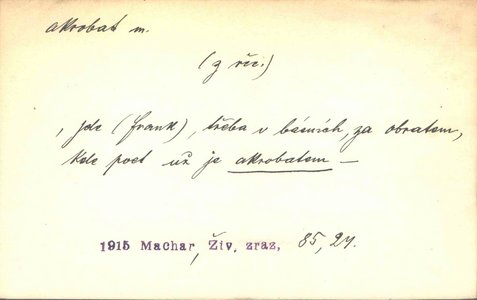 akrobat m.
(z řec.)
, jde (frank), třeba v básních, za obratem,
kde poet už je akrobatem —
1915 Machar, Živ. zraz, 85,24.